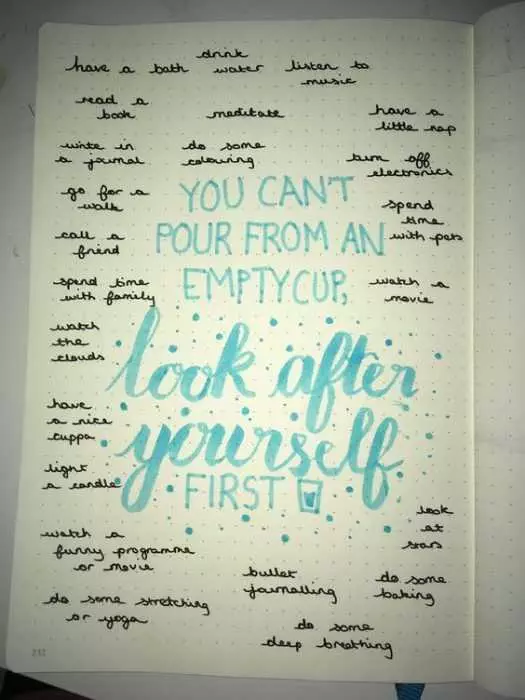 drink
have a bath
water
listen to
music
read a
book
meditate
have a
little nap
write in
a journal
do some
colouring
turn off
electronics
go for a
walk
YOU CAN'T
POUR FROM AN
EMPTY CUP,
spend
time
with pets
call a
friend
spend time
with family
watch a
movie
watch
the
clouds
look after
yourself
FIRST
have
a nice
cuppa
light
a candle
look
at
stars
watch a
funny programme
or movie
bullet
journalling
do some
baking
do some stretching
or yoga
do some
deep breathing